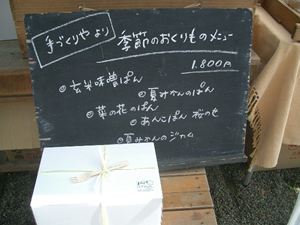 手づくりやより
季節のおくりものメニュー
1.800円
◎玄米味噌ぱん
◎夏みかんのぱん
◎菜の花のぱん
◎あんこぱん 桜のせ
◎夏みかんのジャム